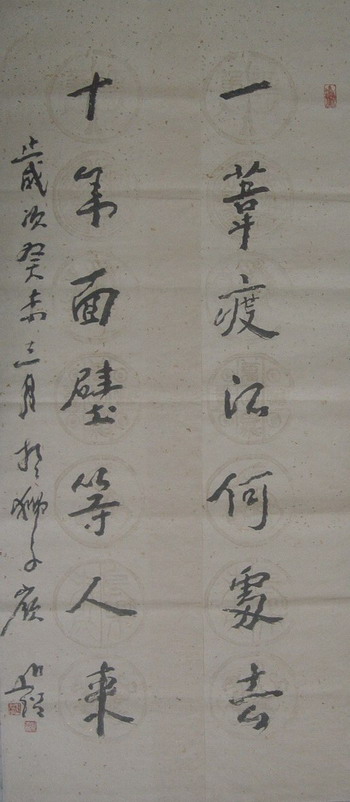 一葦渡江何處去
十年面壁等人來
歲次癸未三月於獅子嶺